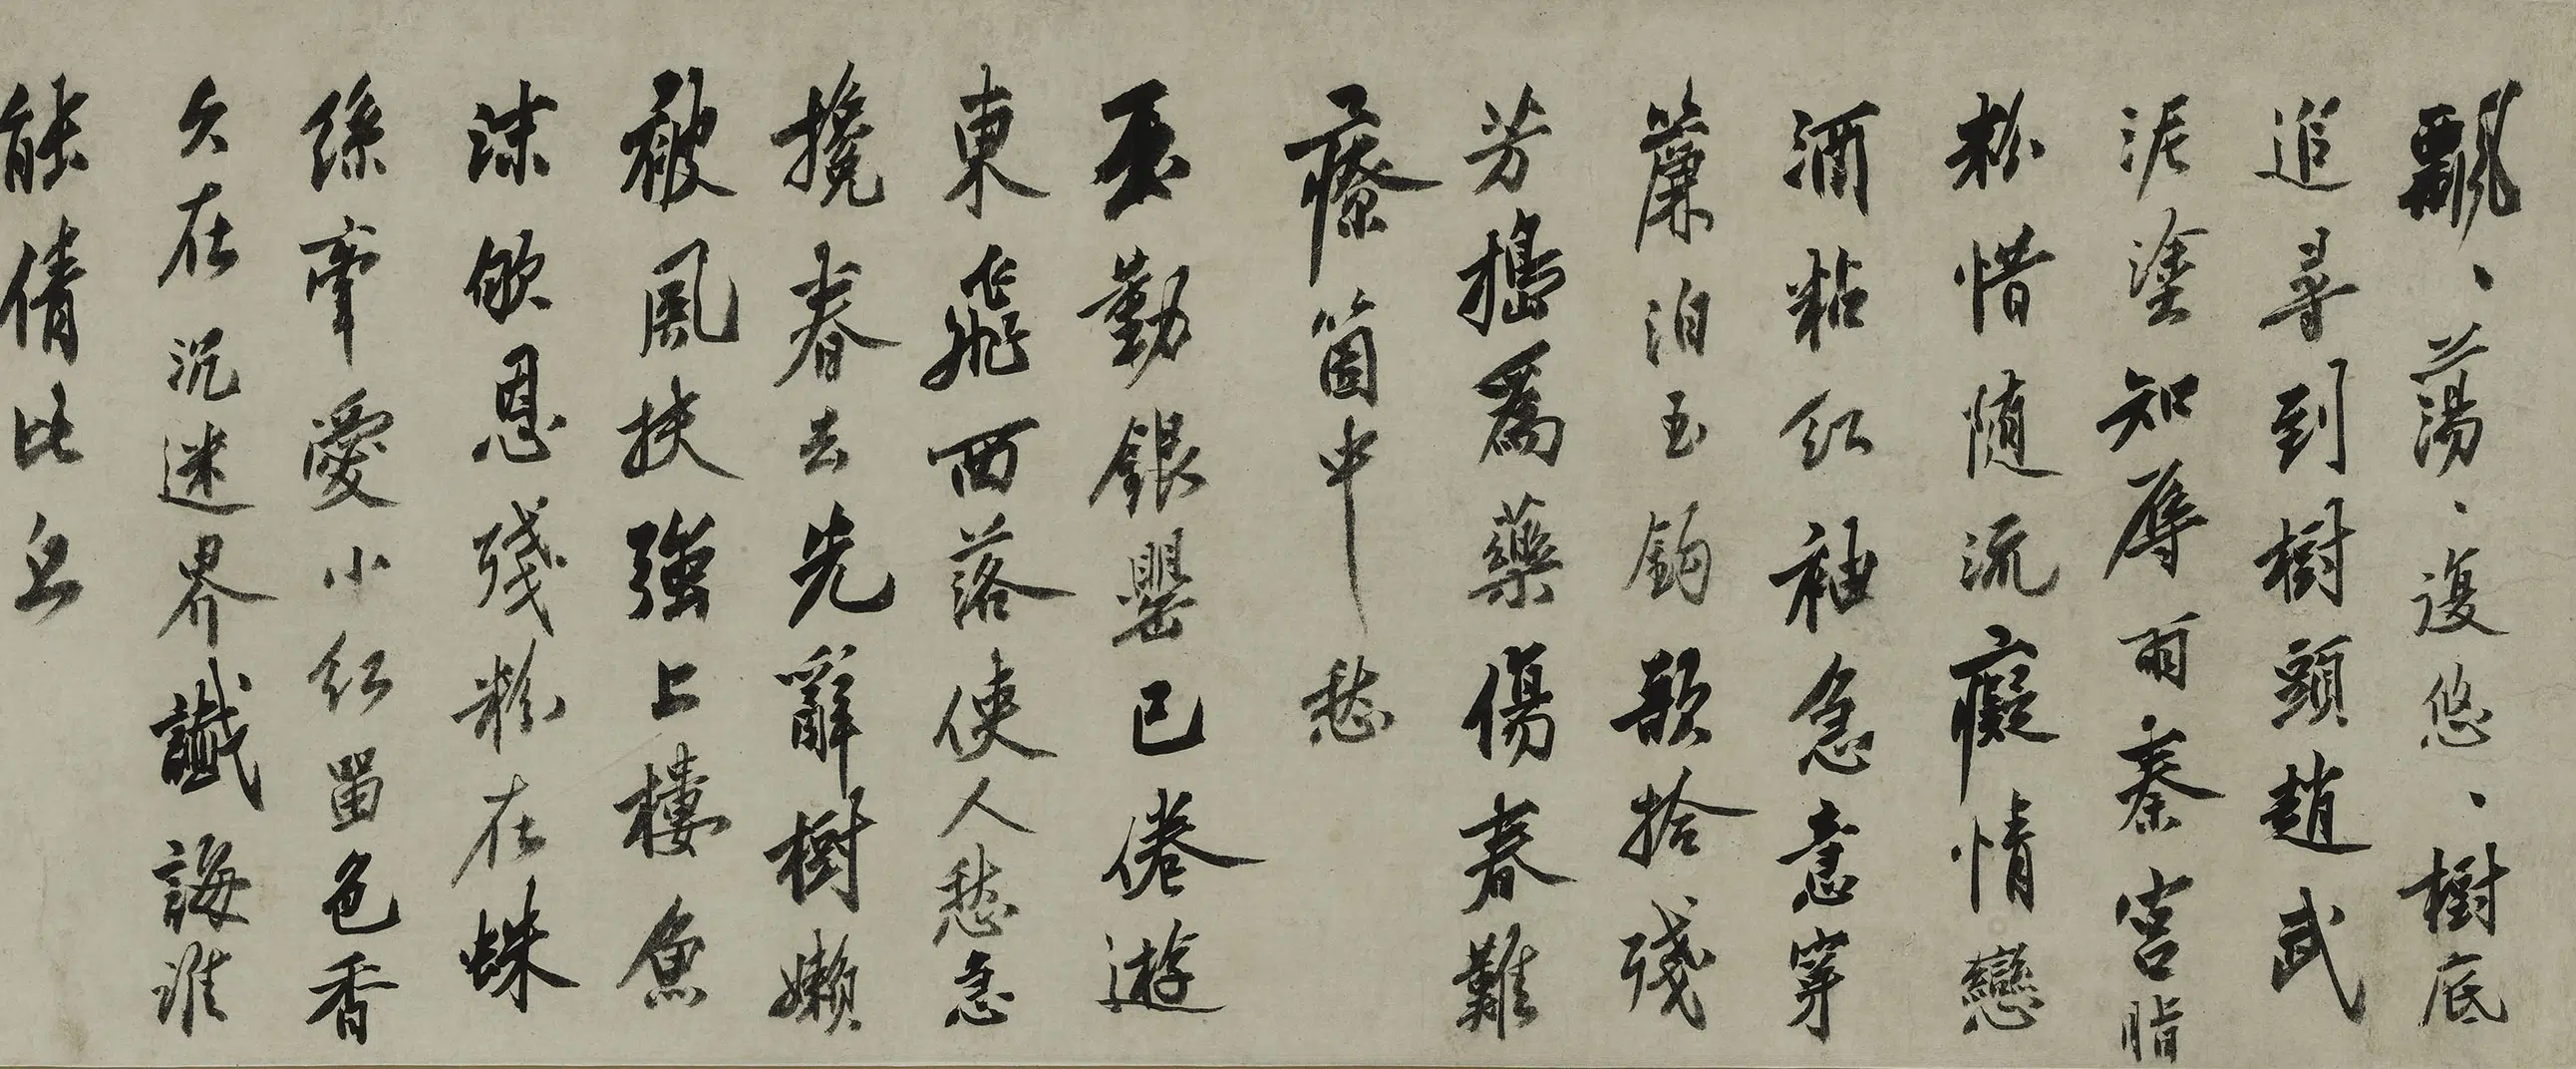 飄、蕩、復悠、樹底
追尋到樹頭趙武
泥塗知辱雨秦宮脂
粉惜隨流癡情戀
酒粘紅袖急意穿
簾泊玉鈎欲拾殘
芳搗為藥傷春難
療箇中愁
玉勒銀罌已倦遊
東飛西落使人愁急
攙春去先辭樹嬾
被風扶強上樓魚
沫欲恩殘粉在蛛
絲牽愛小紅留色香
久在沉迷界懺誨誰
能倩比丘